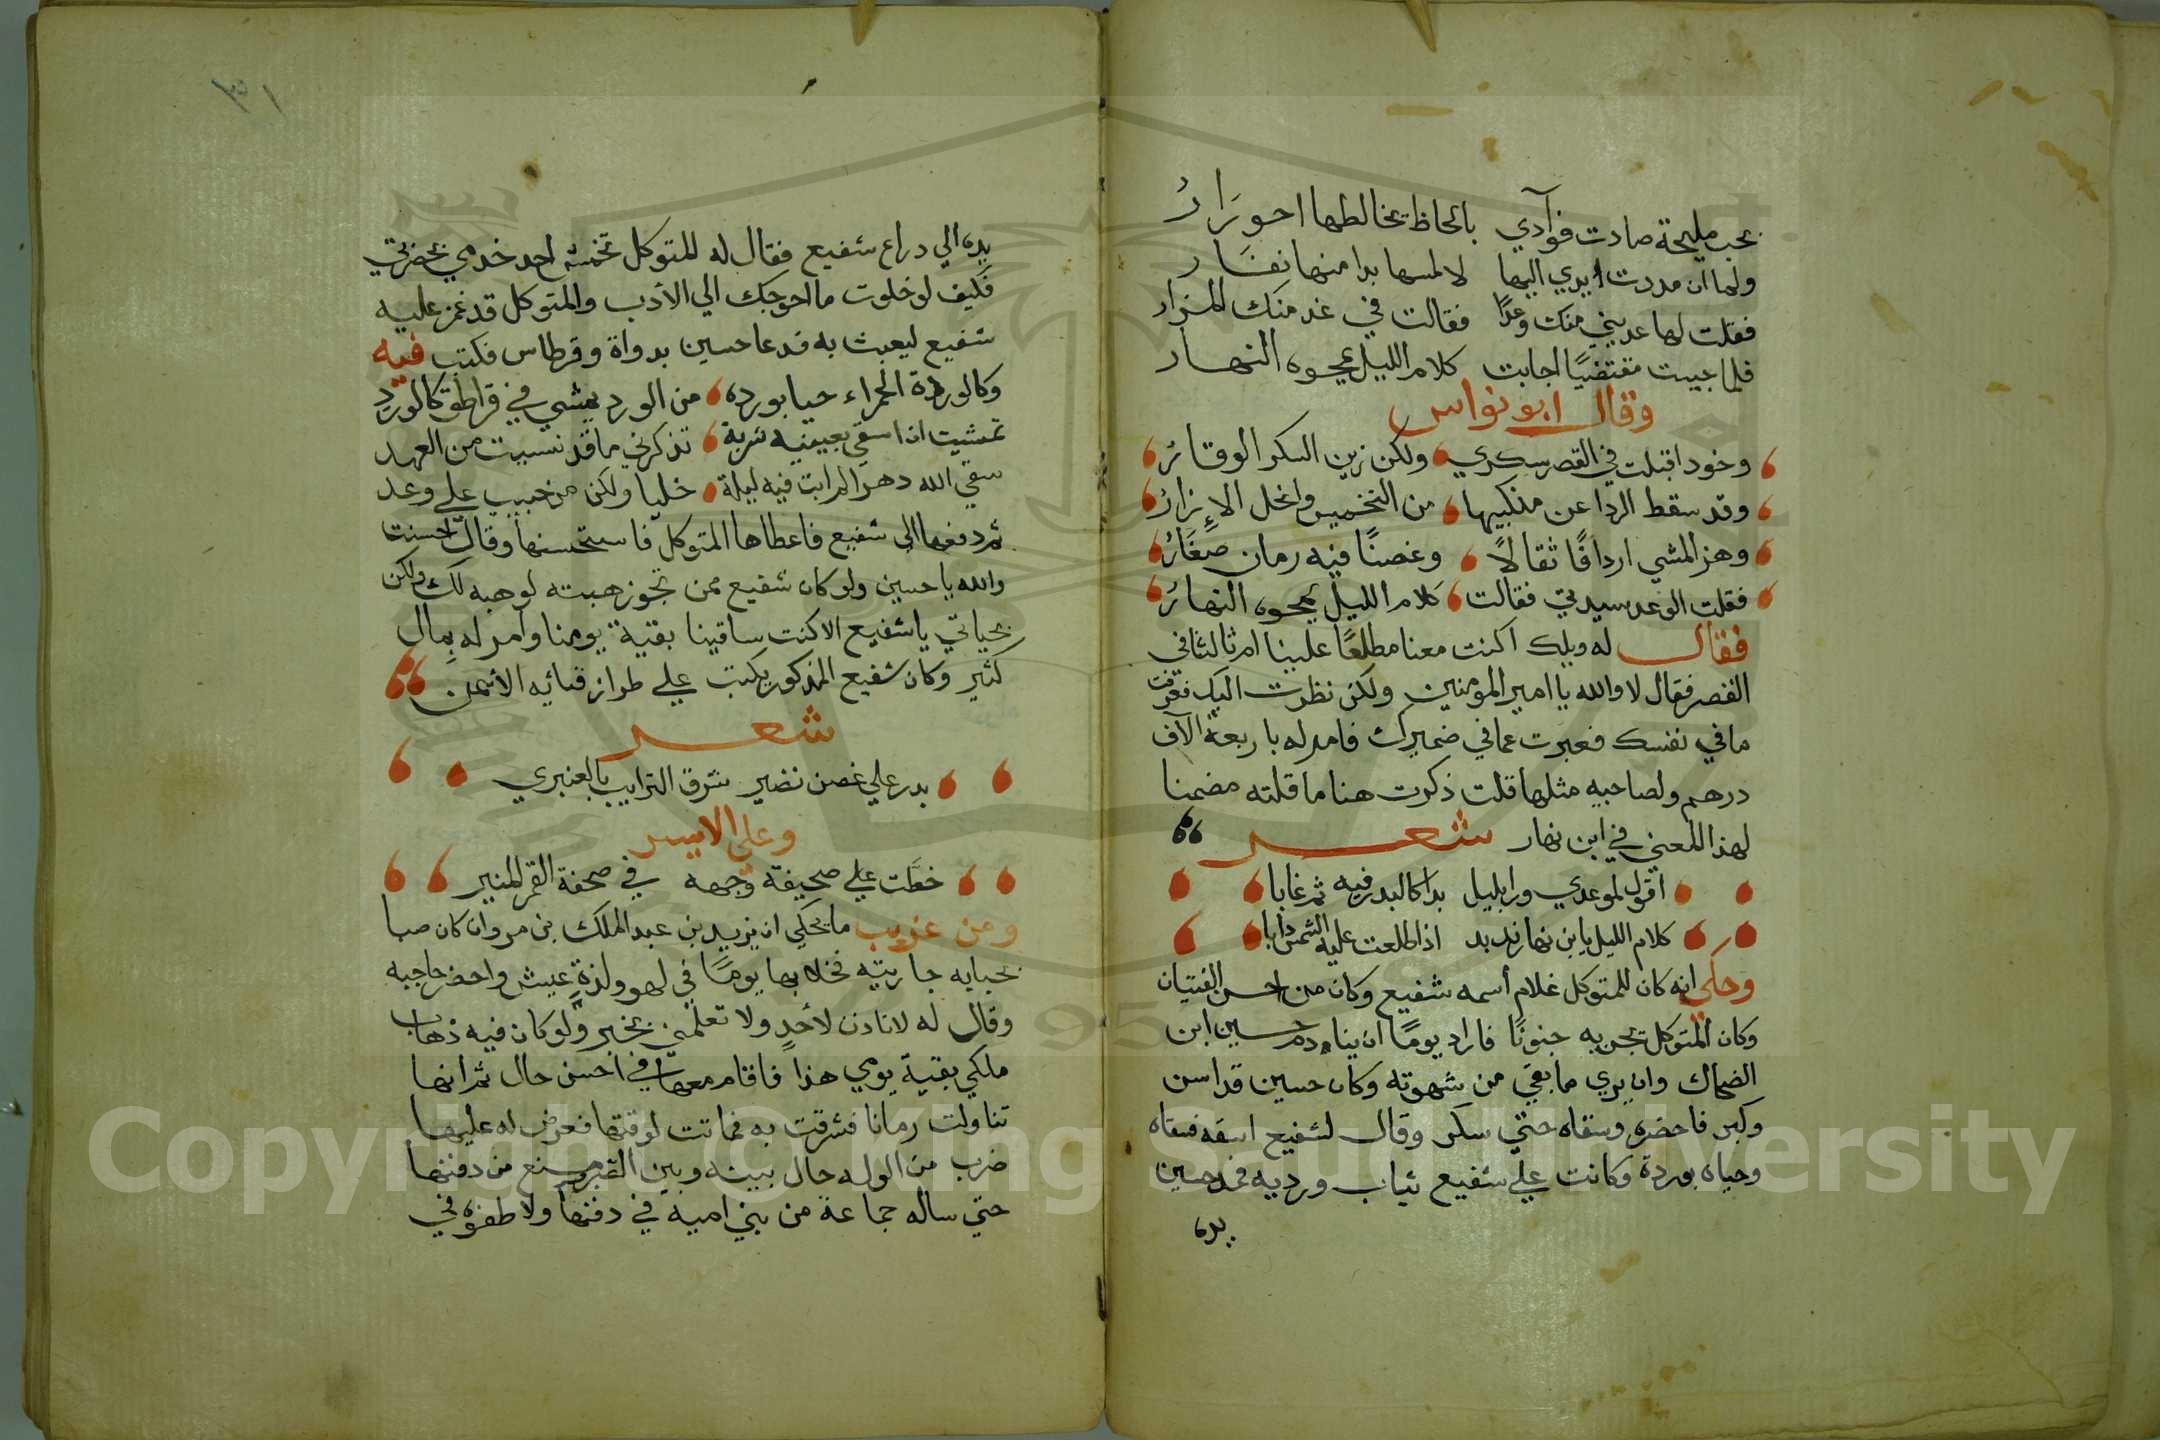 بحب مليحة صادت فوآدي بالحاظ تخالطها احورَارُ
ولما ان مددت ايدي اليها لالمسها بدا منها نفَار
فقلت لها عديني منك وعدًا فقالت في غد منك المزار
فلما جيت مقتضيًا اجابت كلام الليل يمحوه النهار
وقال ابو نواس
وخود اقبلت في القصر سكري ولكن زين السكر الوقارُ
وقد سقط الردا عن منكبيها من التخميس وانحل الإزارُ
وهز المشي اردافًا ثقالاً وغصنًا فيه رمان صغَارُ
فقلت الوعد سيدتي فقالت كلام الليل يمحوه النهارُ
فقال له ويلك اكنت معنا مطلعًا علينا ام ثالثا في
القصر فقال لا والله يا امير المومنين ولكن نظرت اليك فعرفت
ما في نفسك فعبرت عما في ضميرك فامر له باربعة الآف
درهم ولصاحبه مثلها قلت ذكرت هنا ما قلته مضمنا
لهذا المعني في ابن نهار شعر
اقول لموعدي ورا بليل بدا كالبدر فيه ثم غابا
كلام الليل يا بن نهار زبد اذا طلعت عليه الشمس دابا
وحكي انه كان للمتوكل غلام أسمه شفيع وكان من احسن الفتيان
وكان المتوكل يجن به جنونًا فاراد يومًا ان ينادم حسين ابن
الضحاك وان يري ما بقي من شهوته وكان حسين قد اسن
وكبر فاحضره وسقاه حتي سكر وقال لشفيع اسقه فسقاه
وحياه بوردة وكانت علي شفيع ثياب وردية فمد حسين
يده
٣١
يده الي دراع شفيع فقال له المتوكل تخمش احد خدمي بحضرتي
فكيف لو خلوت ما احوجك الي الأدب والمتوكل قد غمز عليه
شفيع ليعبث به فدعا حسين بدواة وقرطاس فكتب فيه
وكالوردة الحمراء حيا بورده من الورد يمشي في قراطق كالورد
تمشيت اذا اسقي بعينيه شربة تذكرني ما قد نسيت من العهد
سقي الله دهرا لم ابت فيه ليلة خليا ولكن من حبيب علي وعد
ثم دفعها الي شفيع فاعطاها المتوكل فاستحسنها وقال احسنت
والله يا حسين ولو كان شفيع ممن تجوز هبته لوهبه لك ولكن
بحياتي يا شفيع الا كنت ساقينا بقية يومنا وامر له بمال
كثير وكان شفيع المذكور يكتب علي طراز قبائه الأيمن
شعر
بدر علي غصن نضير شرق الترايب بالعنبري
وعلي الايسر
خطَّت علي صحيفة وجهه في صحفة القمر المنير
ومن غريب ما يحكي ان يزيد بن عبد الملك بن مروان كان صبا
بحبابه جاريته فخلا بها يومًا في لهو ولذةٍ عيش واحضر حاجبه
وقال له لا تاذن لأحدٍ ولا تعلمني بخبر ولو كان فيه ذهاب
ملكي بقية يومي هذا فاقام معها في احسن حال ثم انها
تناولت رمانا فشرقت به فماتت لوقتها فعرض له عليها
ضرب من الوله حال بينه وبين القبر ومنع من دفنها
حتي ساله جماعة من بني امية في دفنها ولاطفوه في
Copyright © King Saud University